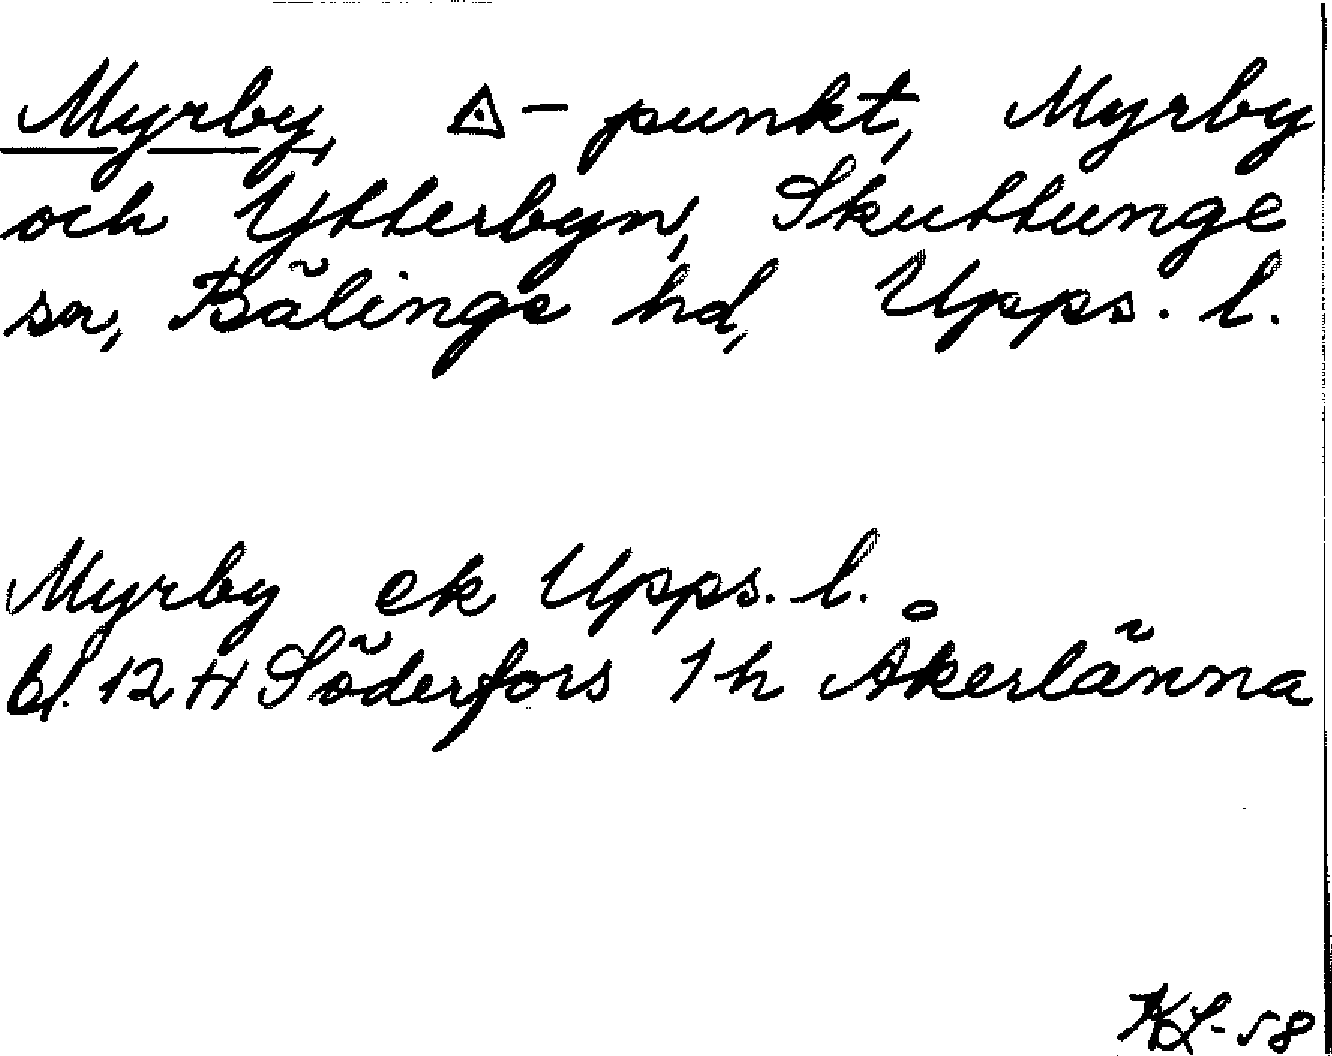 Myrby, △-punkt, Myrby
och Ytterbyn, Skuttunge
sn, Bälinge hd, Upps. l.
Myrby ek Upps. l.
bl. 12 H Söderfors 1 h Åkerlänna
KL-58